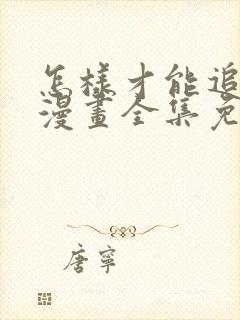 怎樣才能追
漫畫全集免
唐寧